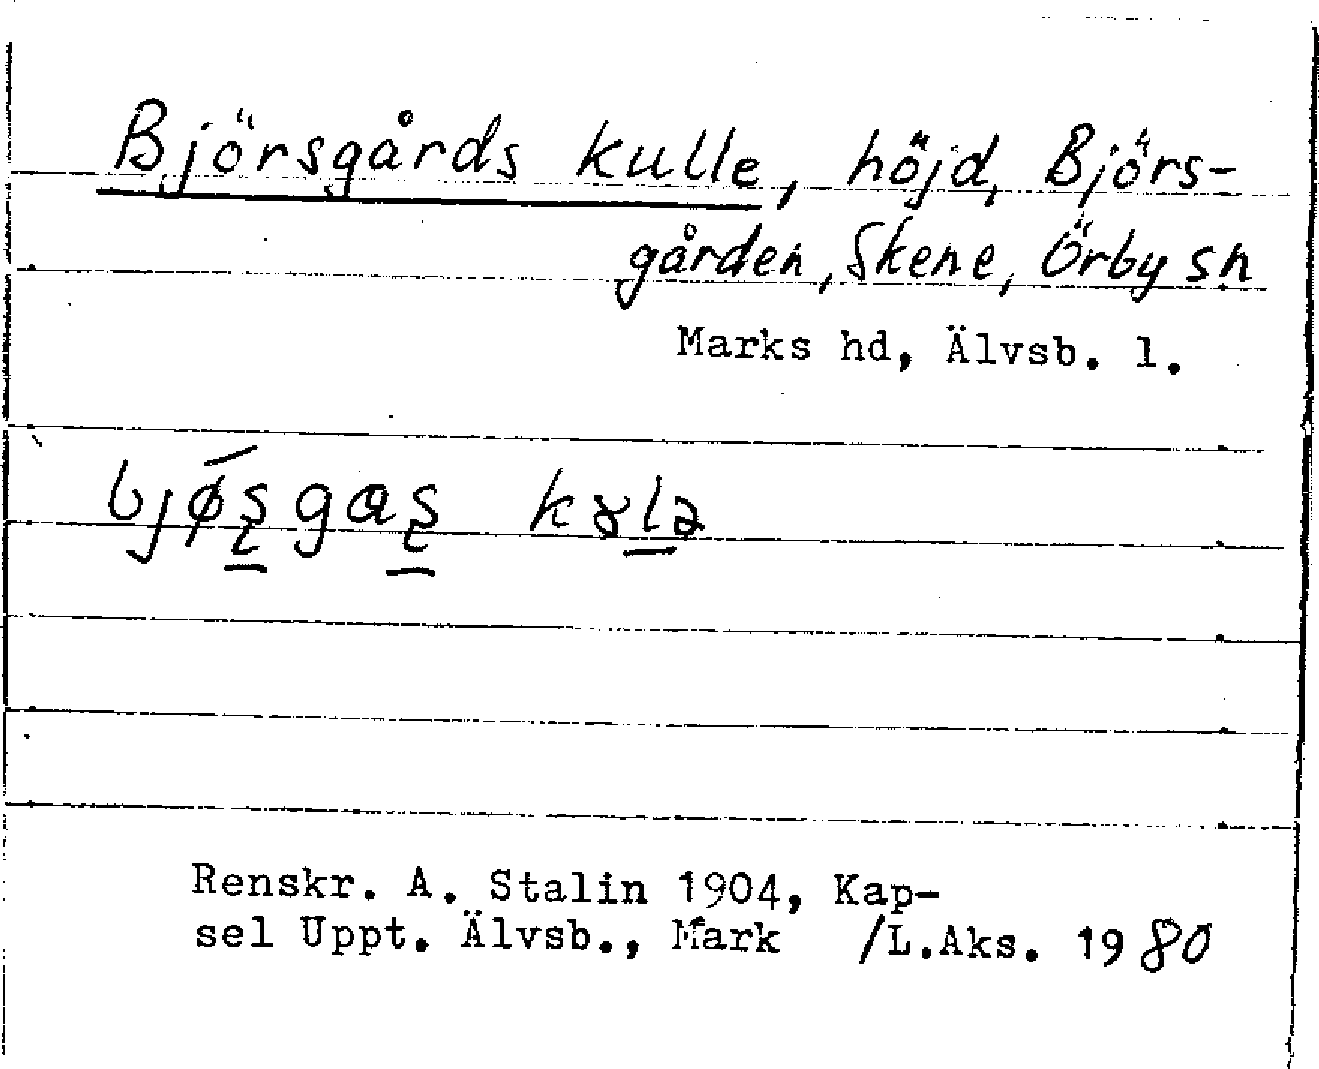 Björsgårds kulle, höjd, Björs-
gården, Skene, Örby sn
Marks hd, Älvsb. l.
bjǿʂgɑʂ kɤlə
Renskr. A. Stalin 1904, Kap-
sel Uppt. Älvsb., Mark /L.Aks. 1980